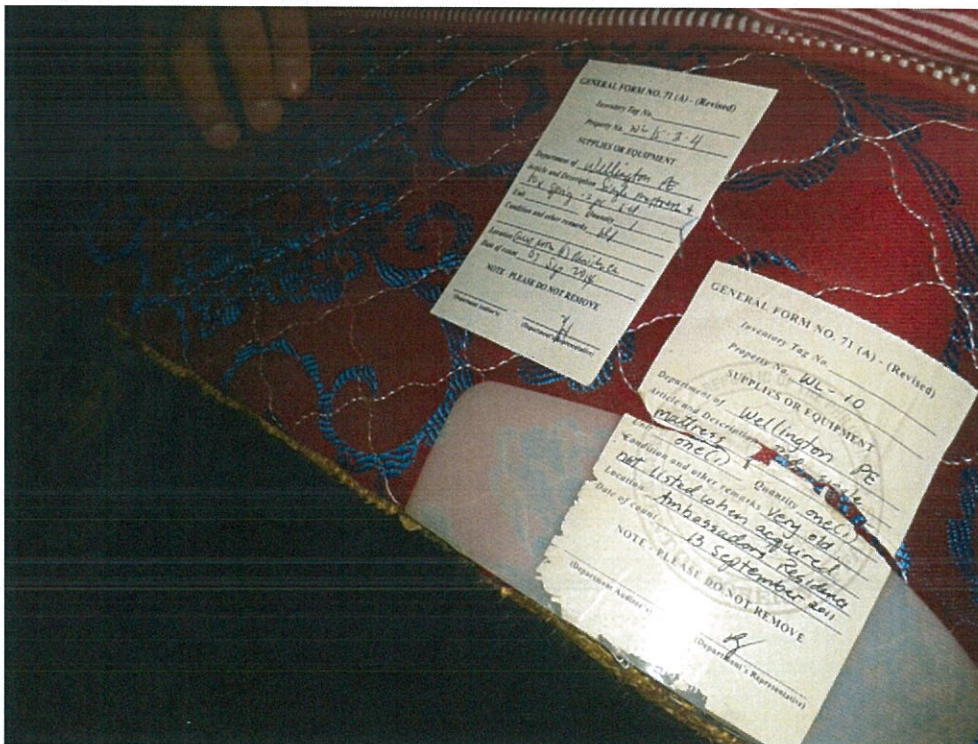 GENERAL FORM NO. 71 (A) - (Revised)
Inventory Tag No.
Property No. WL
SUPPLIES OR EQUIPMENT
Department of Wellington PE
Article and Description Single mattress &
Box
Unit Quantity 1
Condition and other remarks old
Location Residence
Date of count 07 Sep 2014
NOTE - PLEASE DO NOT REMOVE
(Department Auditor's)
(Department's Representative)
GENERAL FORM NO. 71 (A) - (Revised)
Inventory Tag No.
Property No. WL-10
SUPPLIES OR EQUIPMENT
Department of Wellington PE
Article and Description
mattress
Unit one(1) Quantity one(1)
Condition and other remarks very old
not listed when acquired
Location Ambassadors Residence
Date of count 13 September 2011
NOTE - PLEASE DO NOT REMOVE
(Department Auditor's)
(Department's Representative)